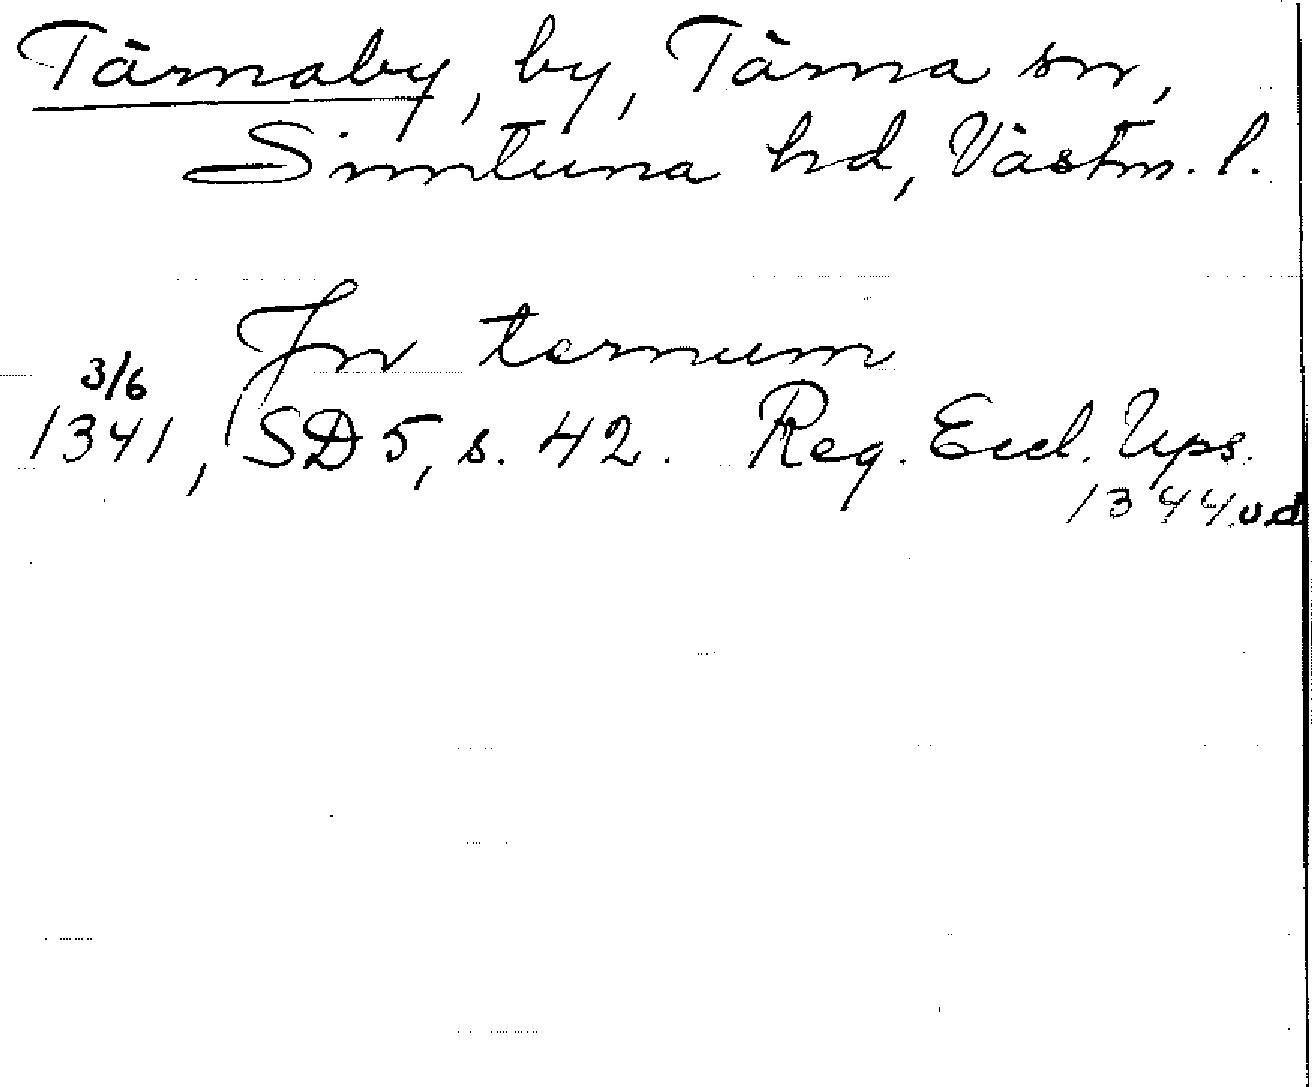 Tärnaby, by, Tärna sn,
Simtuna hd, Västm. l.
In ternum
3/6
1341, SD 5, s. 42. Reg. Eccl. Ups.
1344 vd